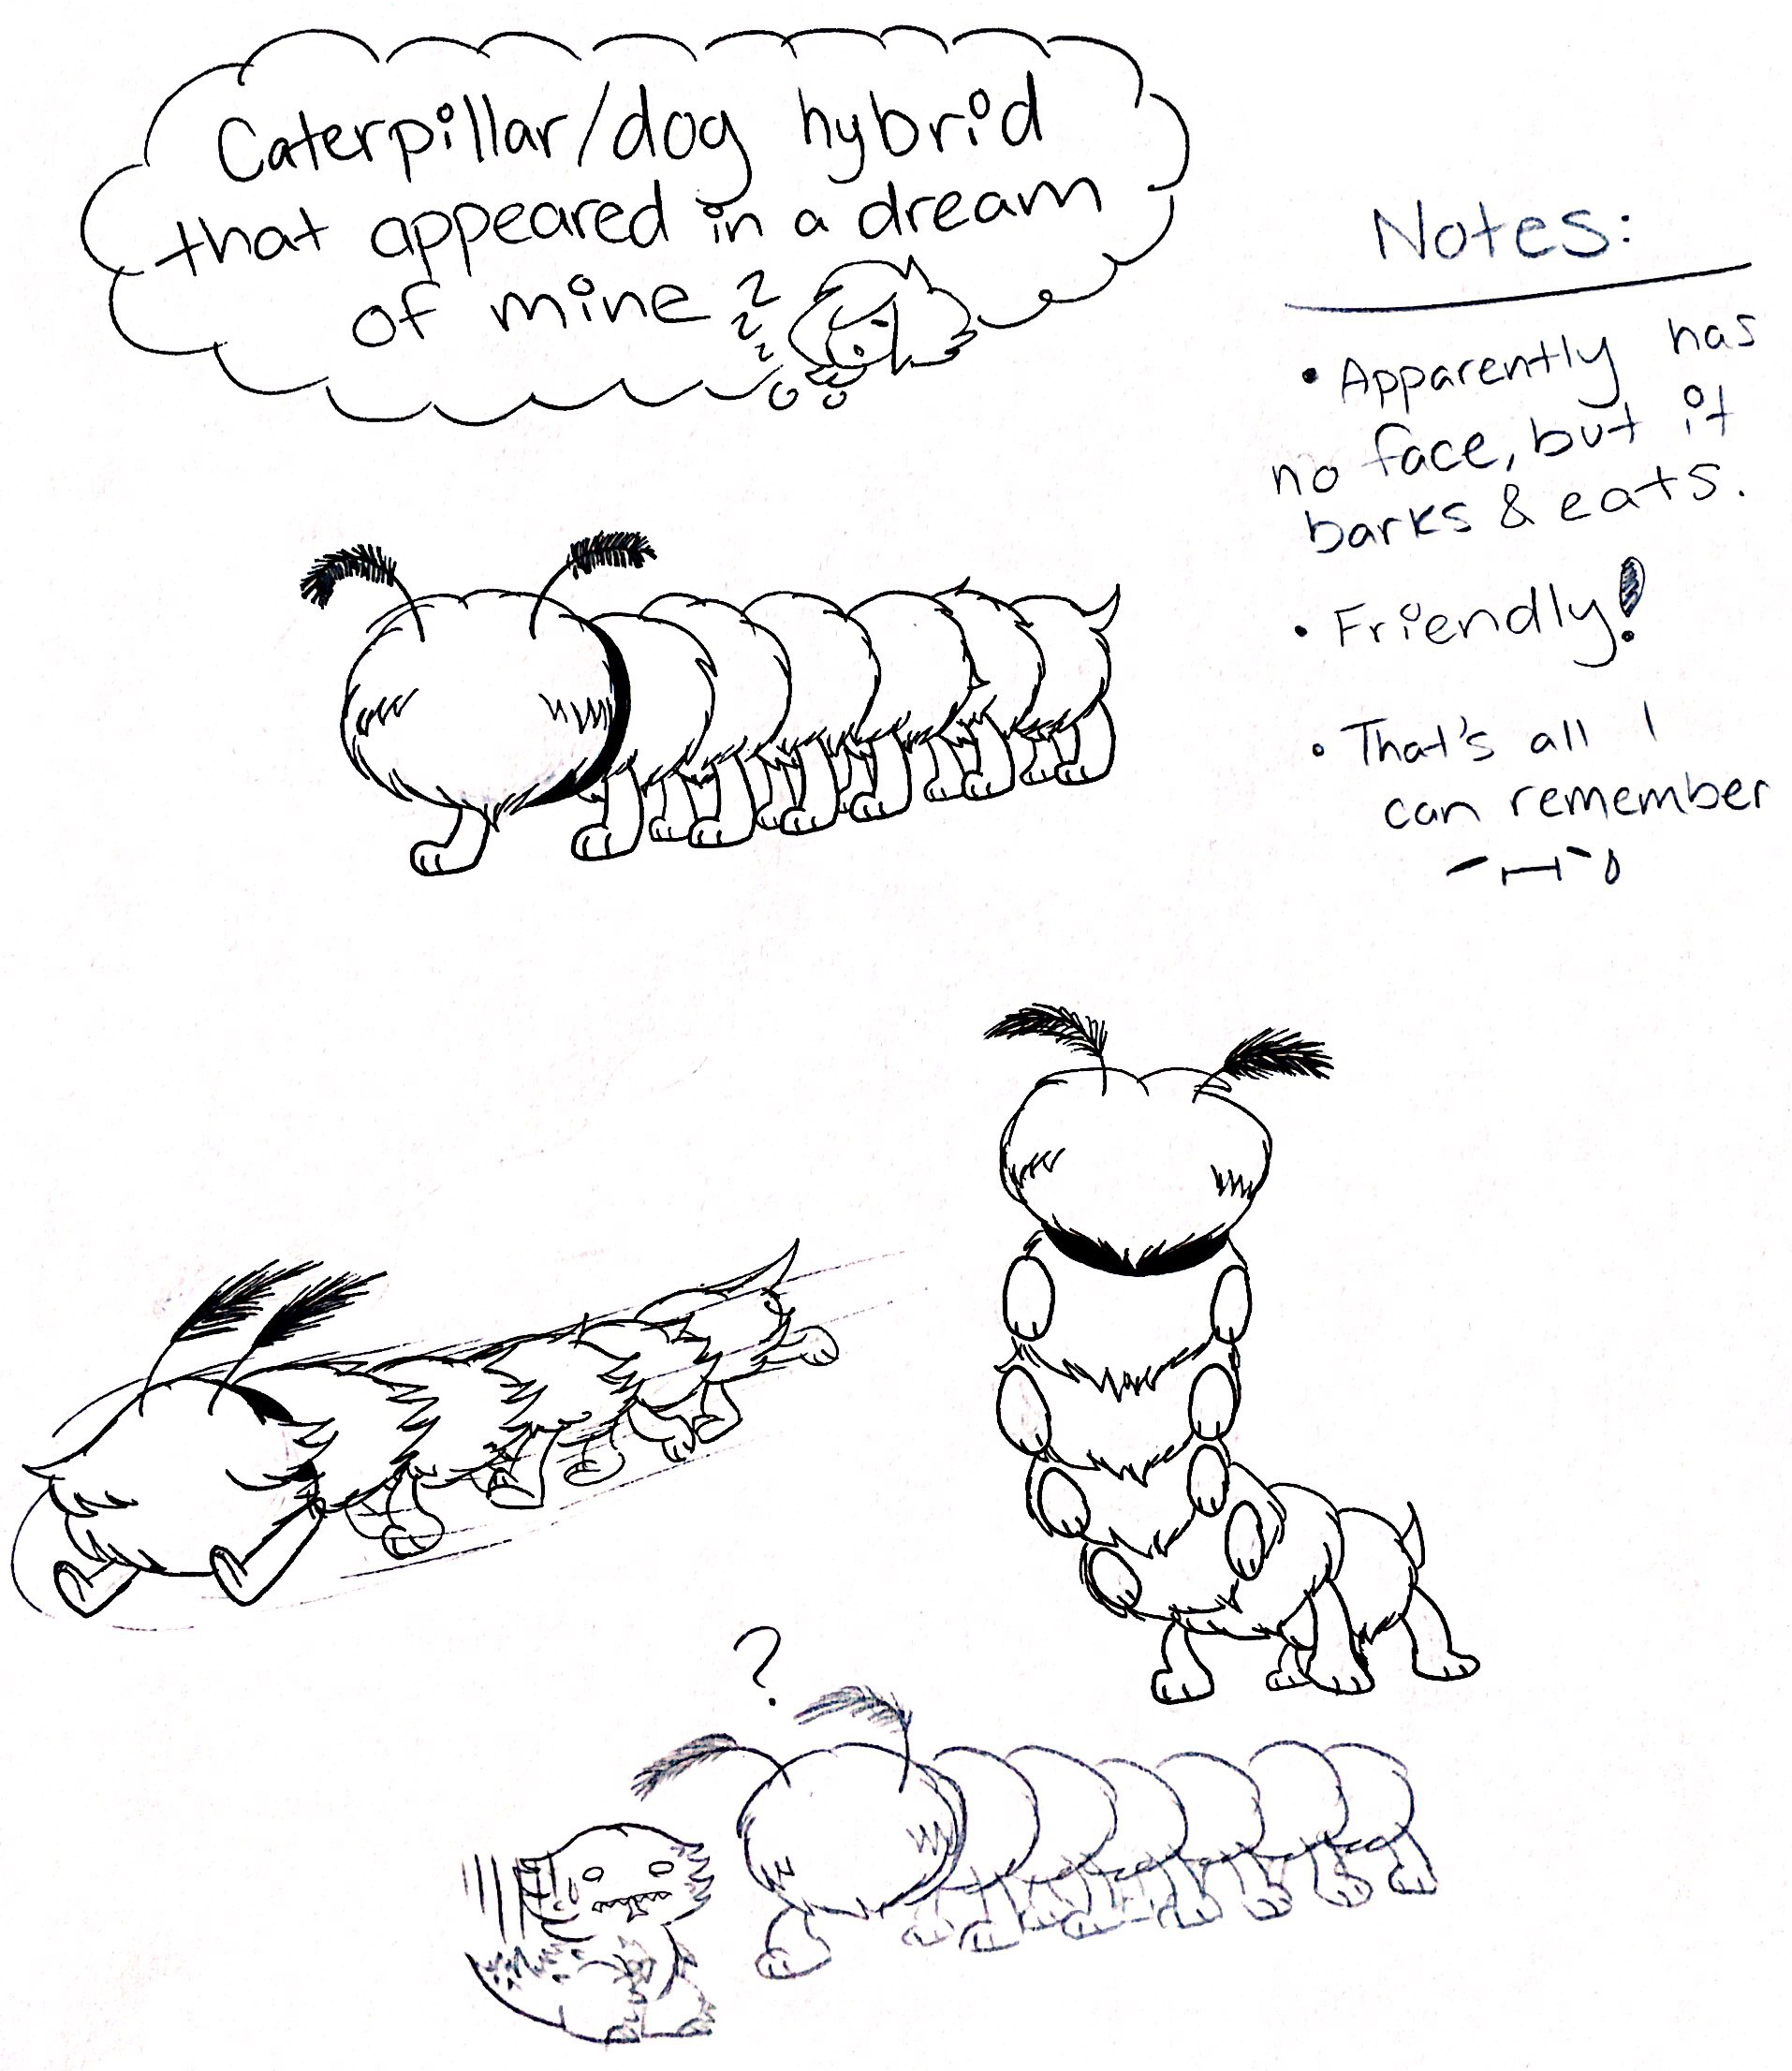 Caterpillar/dog hybrid
that appeared in a dream
of mine z
z
z
Notes:
• Apparently has
no face, but it
barks & eats.
• Friendly!
• That's all I
can remember
?